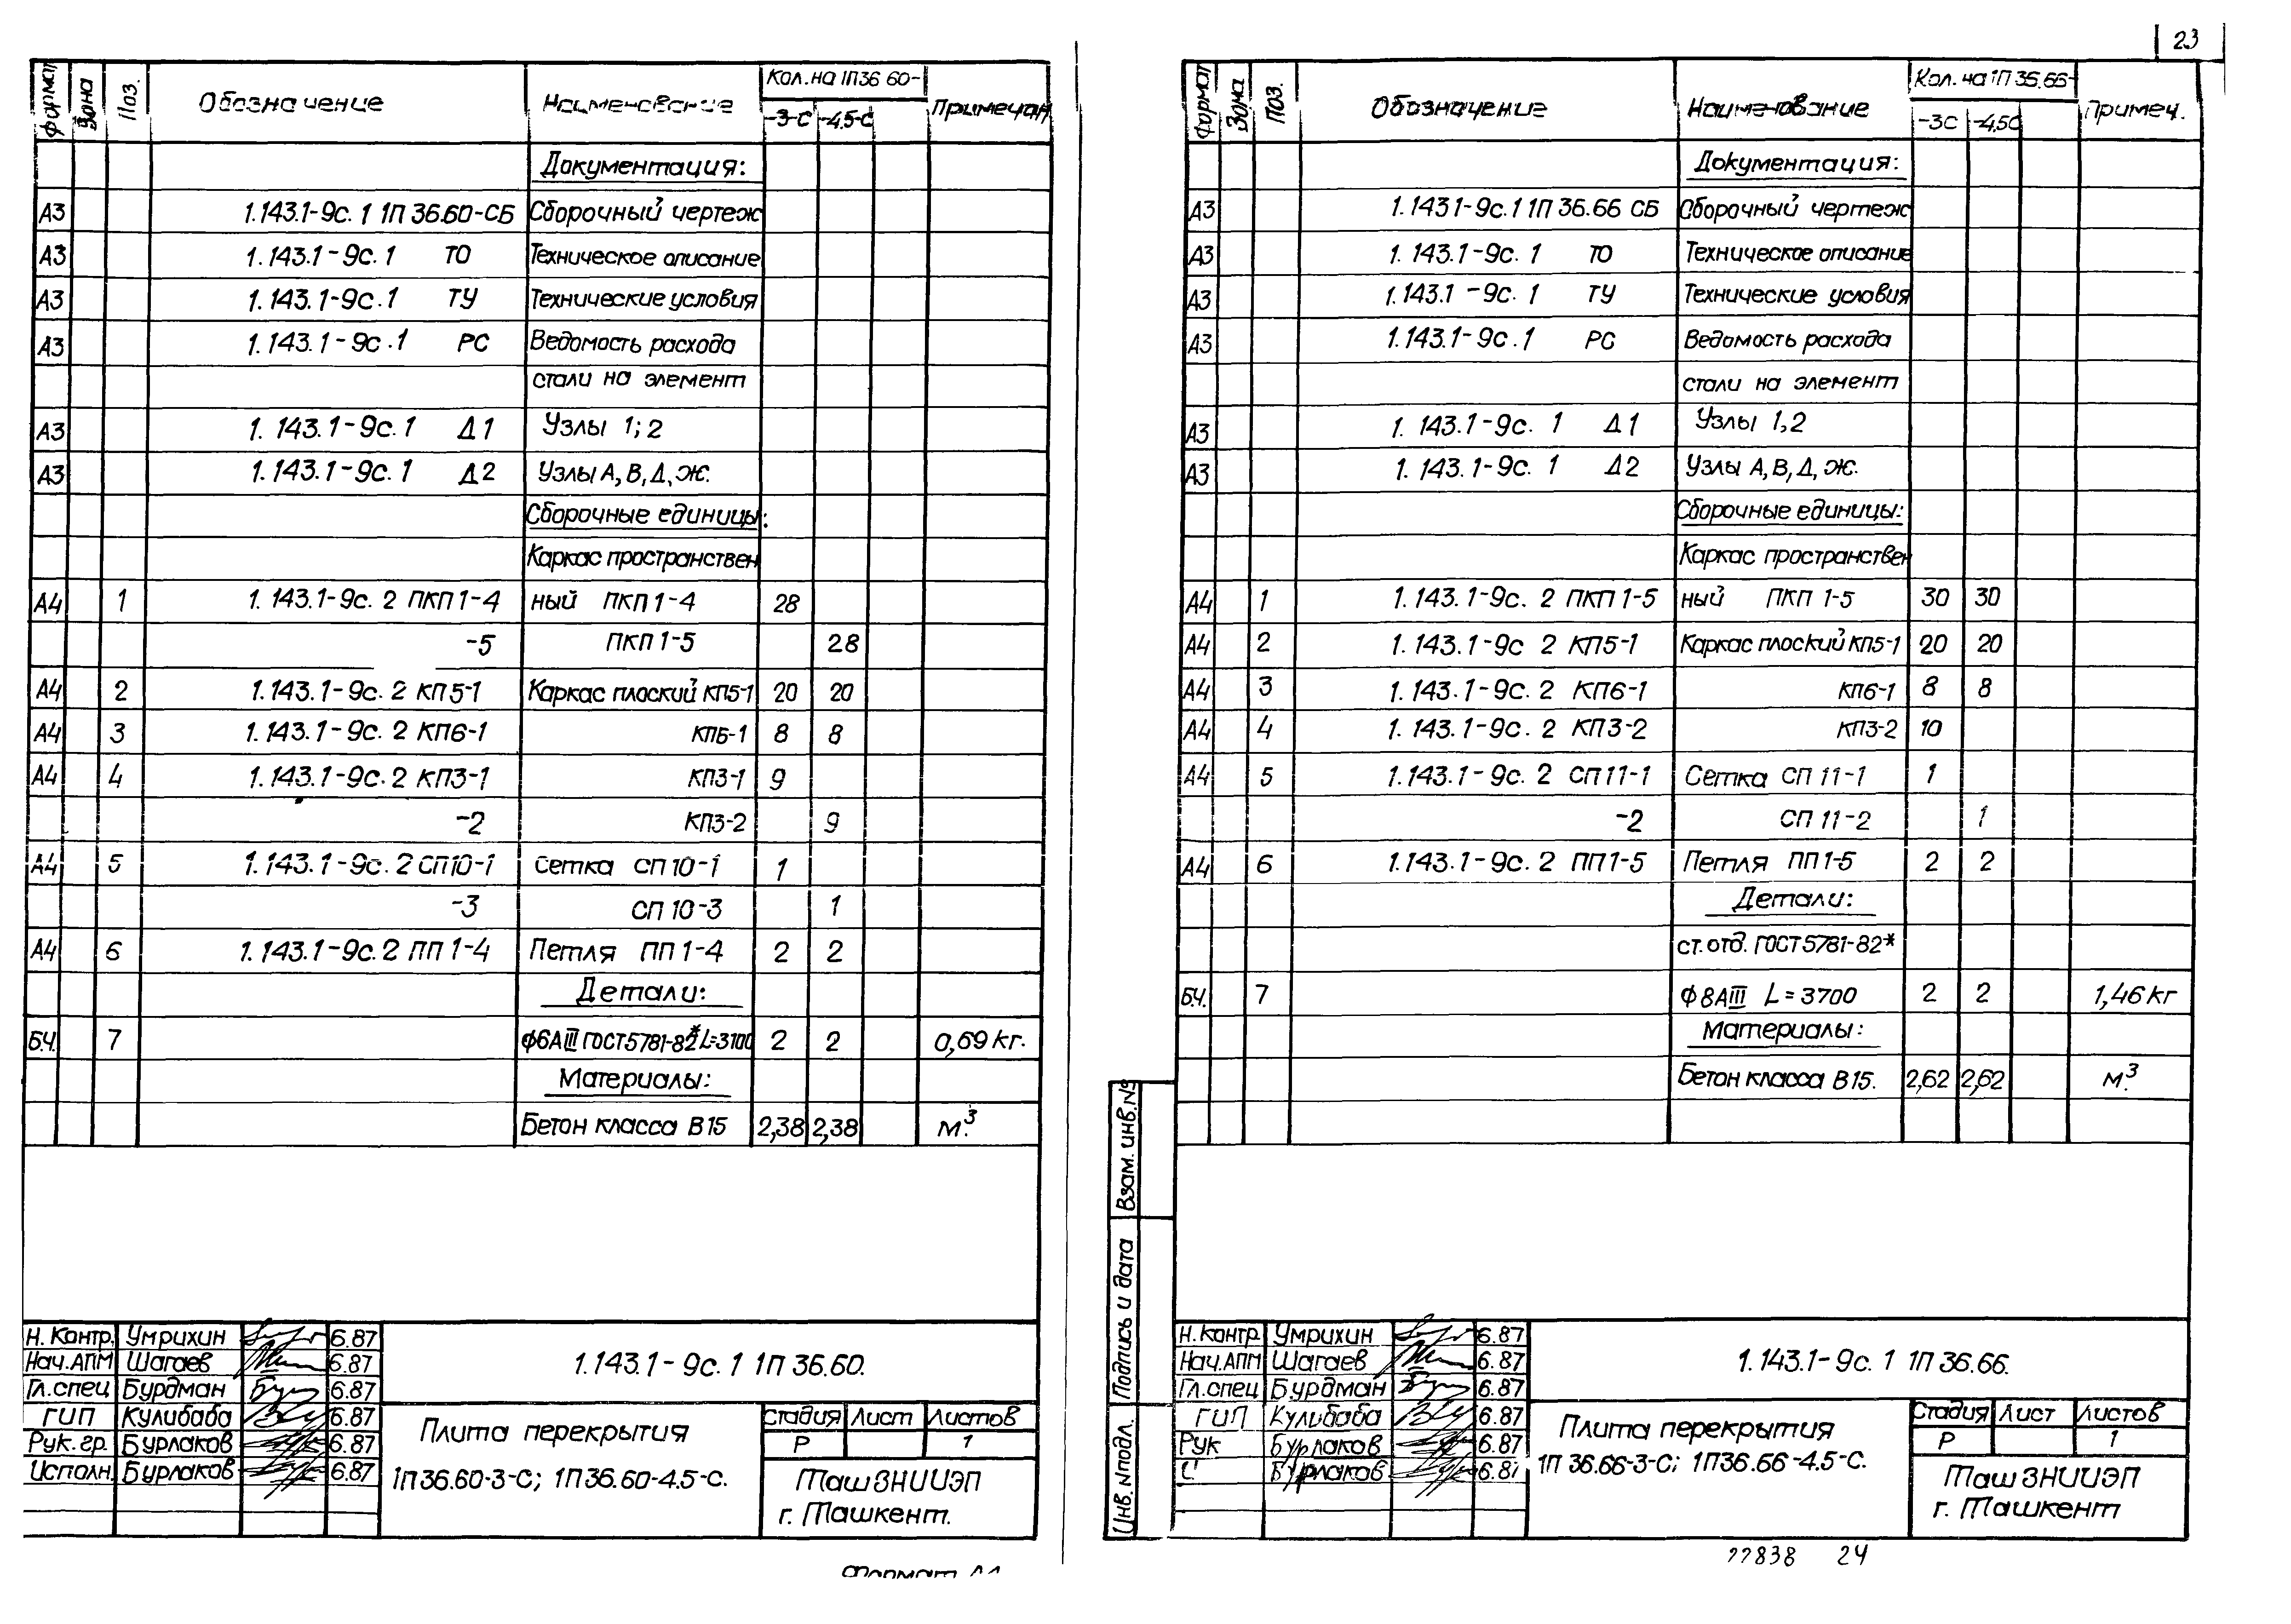 23
Формат Зона Поз. Обозначение Наименование Кол. на 1П36 60- Примечан
-3-С -4,5-С
Документация:
А3 1.143.1-9с. 1 1П 36.60-СБ Сборочный чертеж
А3 1.143.1-9с. 1 ТО Техническое описание
А3 1.143.1-9с. 1 ТУ Технические условия
А3 1.143.1-9с.1 РС Ведомость расхода
стали на элемент
А3 1.143.1-9с. 1 Д1 Узлы 1; 2
А3 1.143.1-9с. 1 Д2 Узлы А, В, Д, Ж.
Сборочные единицы:
Каркас пространствен
А4 1 1.143.1-9с. 2 ПКП1-4 ный ПКП1-4 28
-5 ПКП1-5 28
А4 2 1.143.1-9с. 2 КП5-1 Каркас плоский КП5-1 20 20
А4 3 1.143.1-9с. 2 КП6-1 КП6-1 8 8
А4 4 1.143.1-9с. 2 КП3-1 КП3-1 9
-2 КП3-2 9
А4 5 1.143.1-9с. 2 СП10-1 Сетка СП10-1 1
-3 СП10-3 1
А4 6 1.143.1-9с. 2 ПП1-4 Петля ПП1-4 2 2
Детали:
БЧ. 7 ф6АIII ГОСТ5781-82* L=3100 2 2 0,69 кг.
Материалы:
Бетон класса В15 2,38 2,38 м.³
Н. Контр. Умрихин 6.87
Нач. АПМ Шагаев 6.87
Гл. спец Бурдман 6.87
ГИП Кулибаба 6.87
Рук. гр. Бурлаков 6.87
Исполн. Бурлаков 6.87
1.143.1-9с. 1 1П 36.60.
Плита перекрытия
1П36.60-3-С; 1П36.60-4.5-С.
Стадия Лист Листов
Р 1
ТашЗНИИЭП
г. Ташкент.
Формат
Формат Зона Поз. Обозначение Наименование Кол. на 1П 36.66- Примеч.
-3С -4,5С
Документация:
А3 1.143.1-9с. 1 1П 36.66 СБ Сборочный чертеж
А3 1.143.1-9с. 1 ТО Техническое описание
А3 1.143.1-9с. 1 ТУ Технические условия
А3 1.143.1-9с. 1 РС Ведомость расхода
стали на элемент
А3 1.143.1-9с. 1 Д1 Узлы 1,2
А3 1.143.1-9с. 1 Д2 Узлы А, В, Д, Ж.
Сборочные единицы:
Каркас пространствен
А4 1 1.143.1-9с. 2 ПКП1-5 ный ПКП 1-5 30 30
А4 2 1.143.1-9с 2 КП5-1 Каркас плоский КП5-1 20 20
А4 3 1.143.1-9с. 2 КП6-1 КП6-1 8 8
А4 4 1.143.1-9с. 2 КП3-2 КП3-2 10
А4 5 1.143.1-9с. 2 СП11-1 Сетка СП 11-1 1
-2 СП 11-2 1
А4 6 1.143.1-9с. 2 ПП1-5 Петля ПП1-5 2 2
Детали:
ст. отд. ГОСТ5781-82*
БЧ. 7 ф8АIII L=3700 2 2 1,46 кг
Материалы:
Бетон класса В15. 2,62 2,62 м.³
Взам. инв. №
Подпись и дата
Инв. № подл.
Н. Контр Умрихин 6.87
Нач. АПМ Шагаев 6.87
Гл. спец Бурдман 6.87
ГИП Кулибаба 6.87
Рук Бурлаков 6.87
Бурлаков 6.87
1.143.1-9с. 1 1П 36.66.
Плита перекрытия
1П 36.66-3-С; 1П36.66-4.5-С.
Стадия Лист Листов
Р 1
ТашЗНИИЭП
г. Ташкент
22838 24